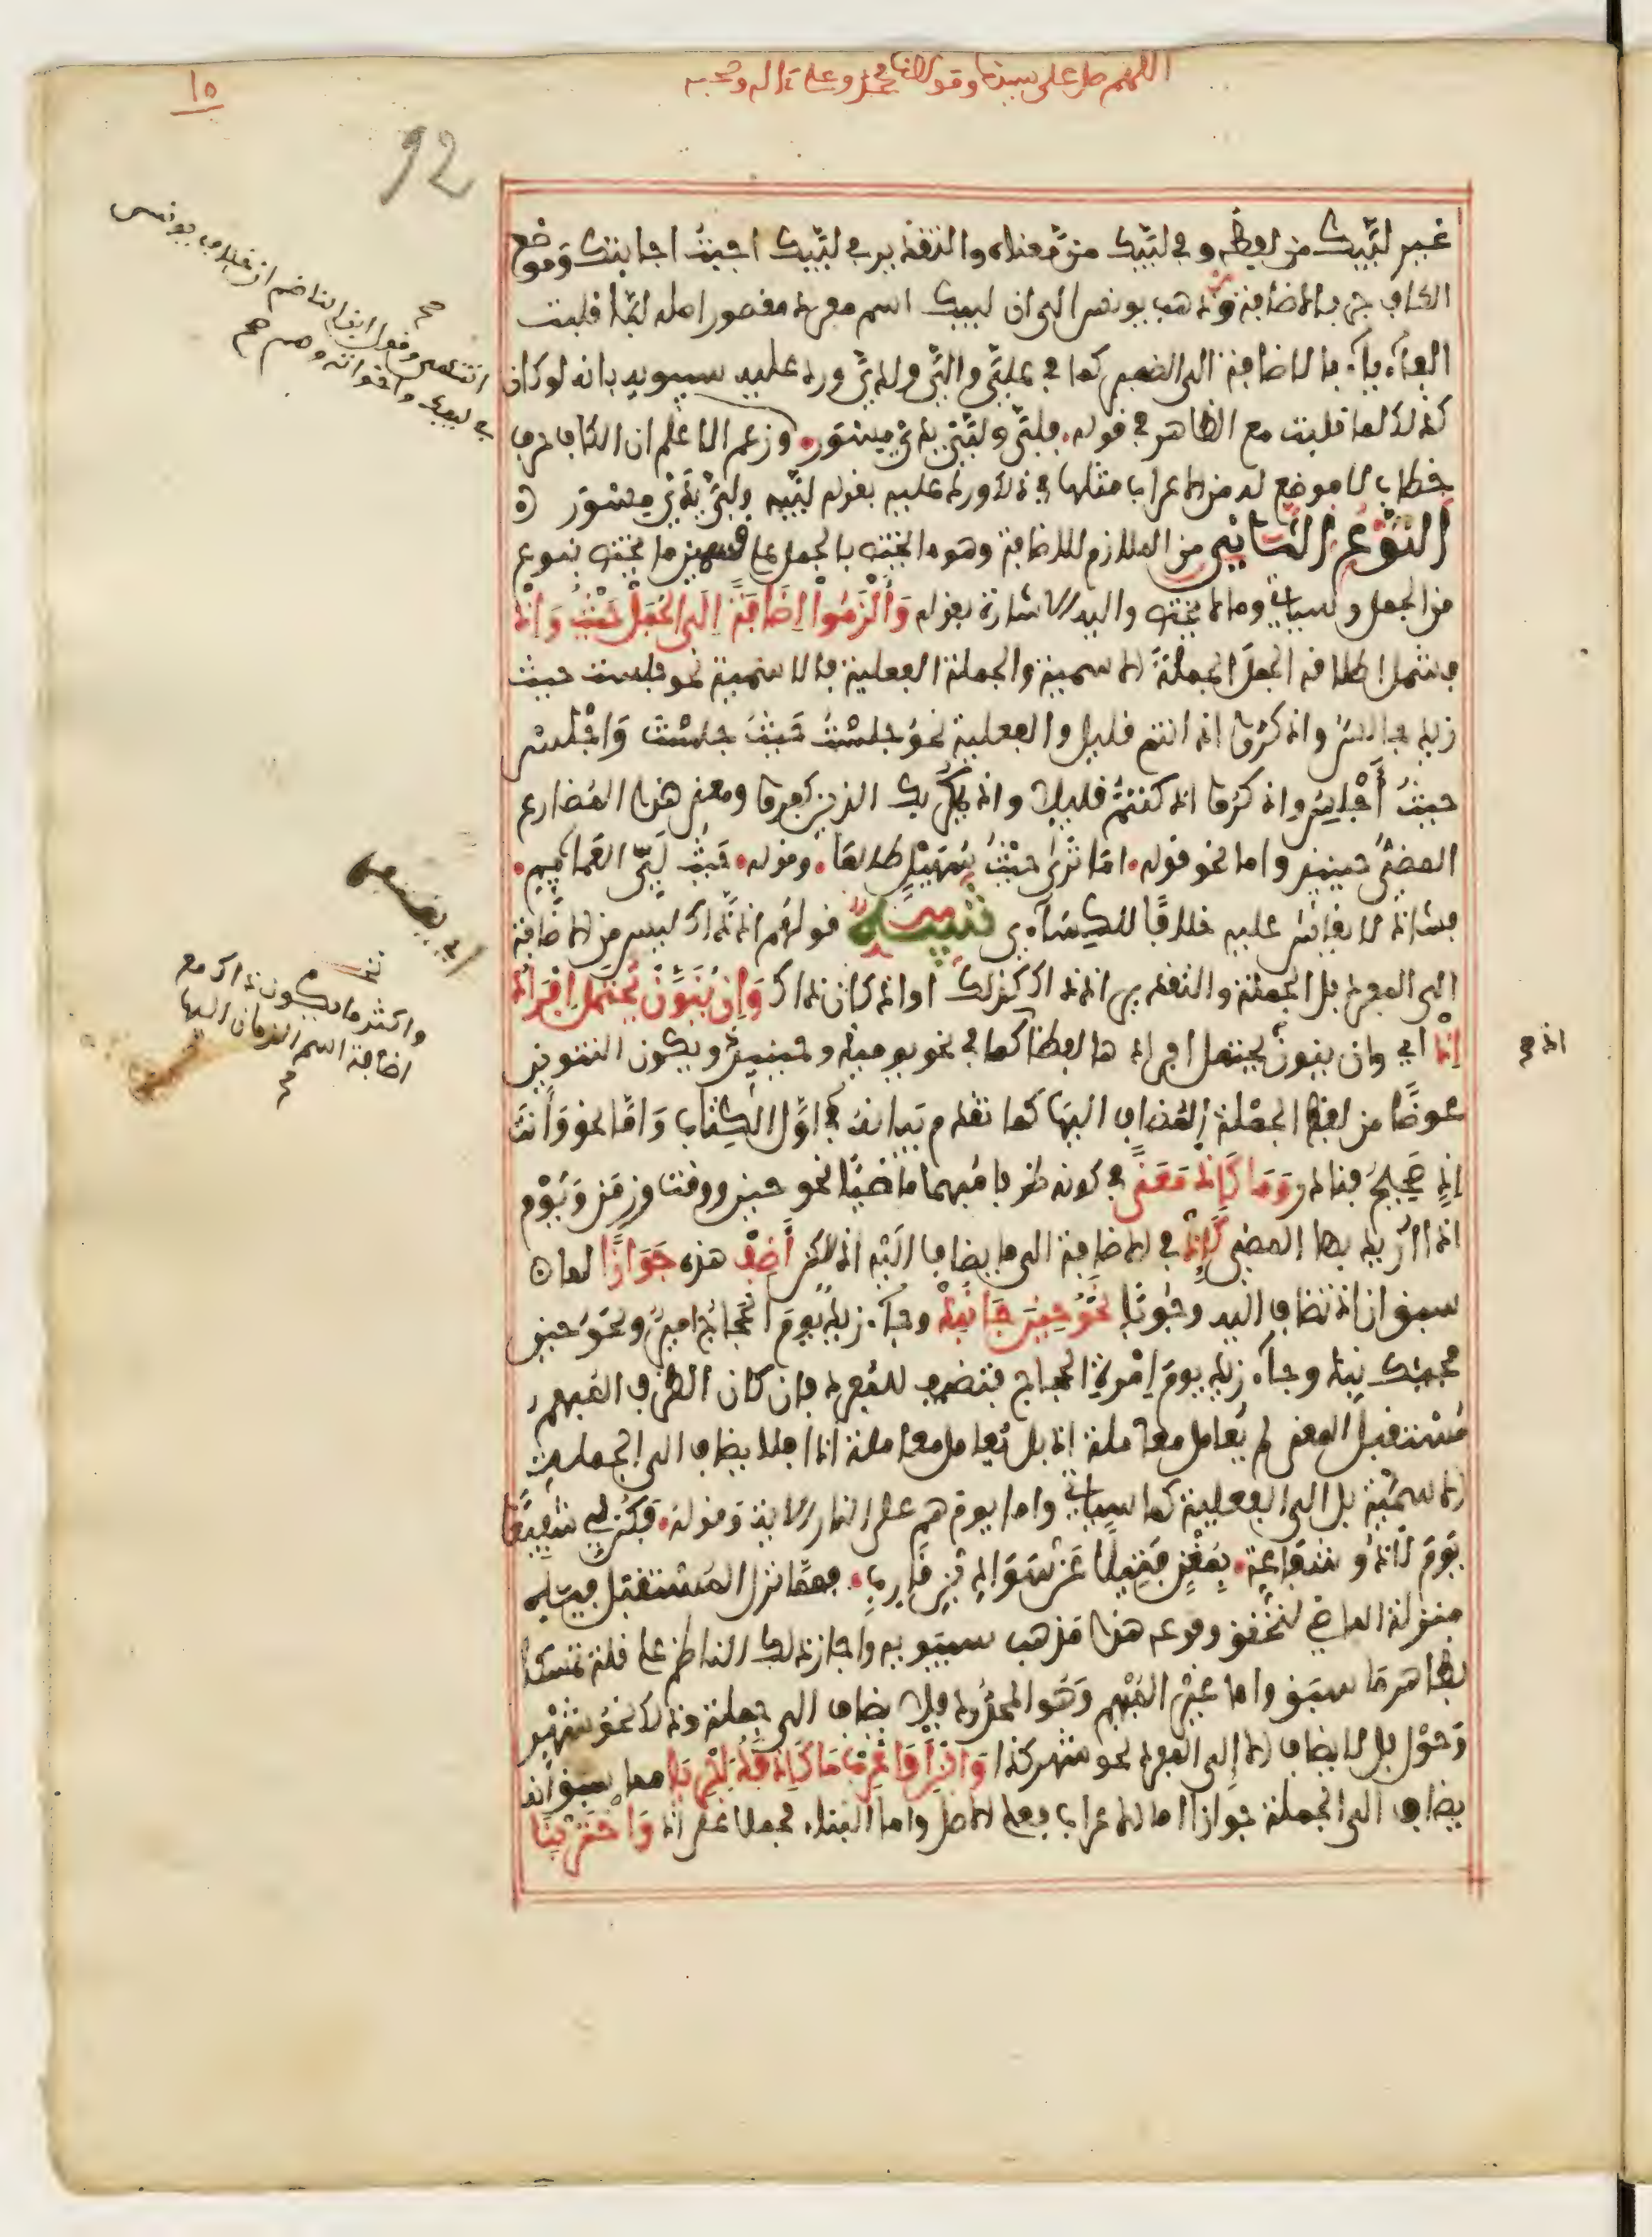 اللهم صل على سيدنا ومولانا محمد وعلى ءاله وصحبه
١٥
92
غير لبيك من لفظه وفي لبيك من معناه والتقدير في لبيك اجبت اجابتك وموضع
الكاف جر بالاضافة وذهب يونس الى ان لبيك اسم مفرد مقصور اصله لبا قلبت
الفه ياء بالاضافة الى الضمير كما في على والى ولدى ورد عليه سيبويه بانه لو كان
كذلك لما قلبت مع الظاهر في قوله فلبى ولبي يدي مسور وزعم الاعلم ان الكاف حرف
خطاب لا موضع له من الاعراب مثلها في ذلك ورد عليه بقولهم لبيه ولبي يدي مسور
النوع الثاني من الملازم للاضافة وهو ما يختص بالجمل على قسمين ما يختص بنوع
من الجمل وسياتي وما لا يختص واليه الاشارة بقوله وألزموا إضافة إلى الجمل حيث وإذ
فشمل اطلاقه الجمل الجملة الاسمية والجملة الفعلية فالاسمية نحو جلست حيث
زيد جالس واذكروا اذ انتم قليل والفعلية نحو جلست حيث جلست واجلس
حيث أجلس واذكروا اذ كنتم قليلا واذ يمكر بك الذين كفروا ومعنى هذا المضارع
المضي حينئذ واما نحو قوله اما ترى حيث سهيل طالعا وقوله حيث لي العمائم
فشاذ لا يقاس عليه خلافا للكساءي تنبيه قولهم اذ ذاك ليس من الاضافة
الى المفرد بل الجملة والتقدير اذ ذاك كذلك او اذ كان ذاك وإن ينون يحتمل إفراد
إذ اي وان ينون يحتمل افرادها لفظا كما في نحو يومئذ وحينئذ ويكون التنوين
عوضا من لفظ الجملة المضاف اليها كما تقدم بيانه في اول الكتاب واما نحو وأنت
إذ صحيح فنادر وما كإذ معنى في كونه ظرفا مبهما ماضيا نحو حين ووقت وزمن ويوم
اذا اريد بها المضي كإذ في الاضافة الى ما يضاف اليه اذ لكن أضف هذه جوازا لما
سبق ان اذ تضاف اليه وجوبا نحو حين جا نبذ وجاء زيد يوم الحجاج امير ونحو حين
مجيئك نبذ وجاء زيد يوم إمرة الحجاج فتضاف للمفرد فان كان الظرف المبهم
مستقبل المعنى لم يعامل معاملة إذ بل يعامل معاملة اذا فلا يضاف الى الجملة
الاسمية بل الى الفعلية كما سياتي واما يوم هم على النار الاية وقوله فكن لي شفيعا
يوم لا ذو شفاعة بمغن فتيلا عن سواد بن قارب فمما نزل المستقبل فيه
منزلة الماضي لتحقق وقوعه هذا مذهب سيبويه واجاز ذلك الناظم على قلة تمسكا
بظاهر ما سبق واما غير المبهم وهو المحدود فلا يضاف الى جملة وذلك نحو شهر
وحول بل لا يضاف الا إلى المفرد نحو شهر كذا وابن أو اعرب ما كإذ قد أجريا مما سبق انه
يضاف الى الجملة جوازا اما الاعراب فعلى الاصل واما البناء فحملا على اذ واختر بنا
صح
انتهى وقول ابن الناظم ان خلاف يونس
في لبيك واخواته وهم صح
اي بعضهم
واكثر ما يكون ذاك مع
اضافة اسم الزمان اليها
صح
اذ صح